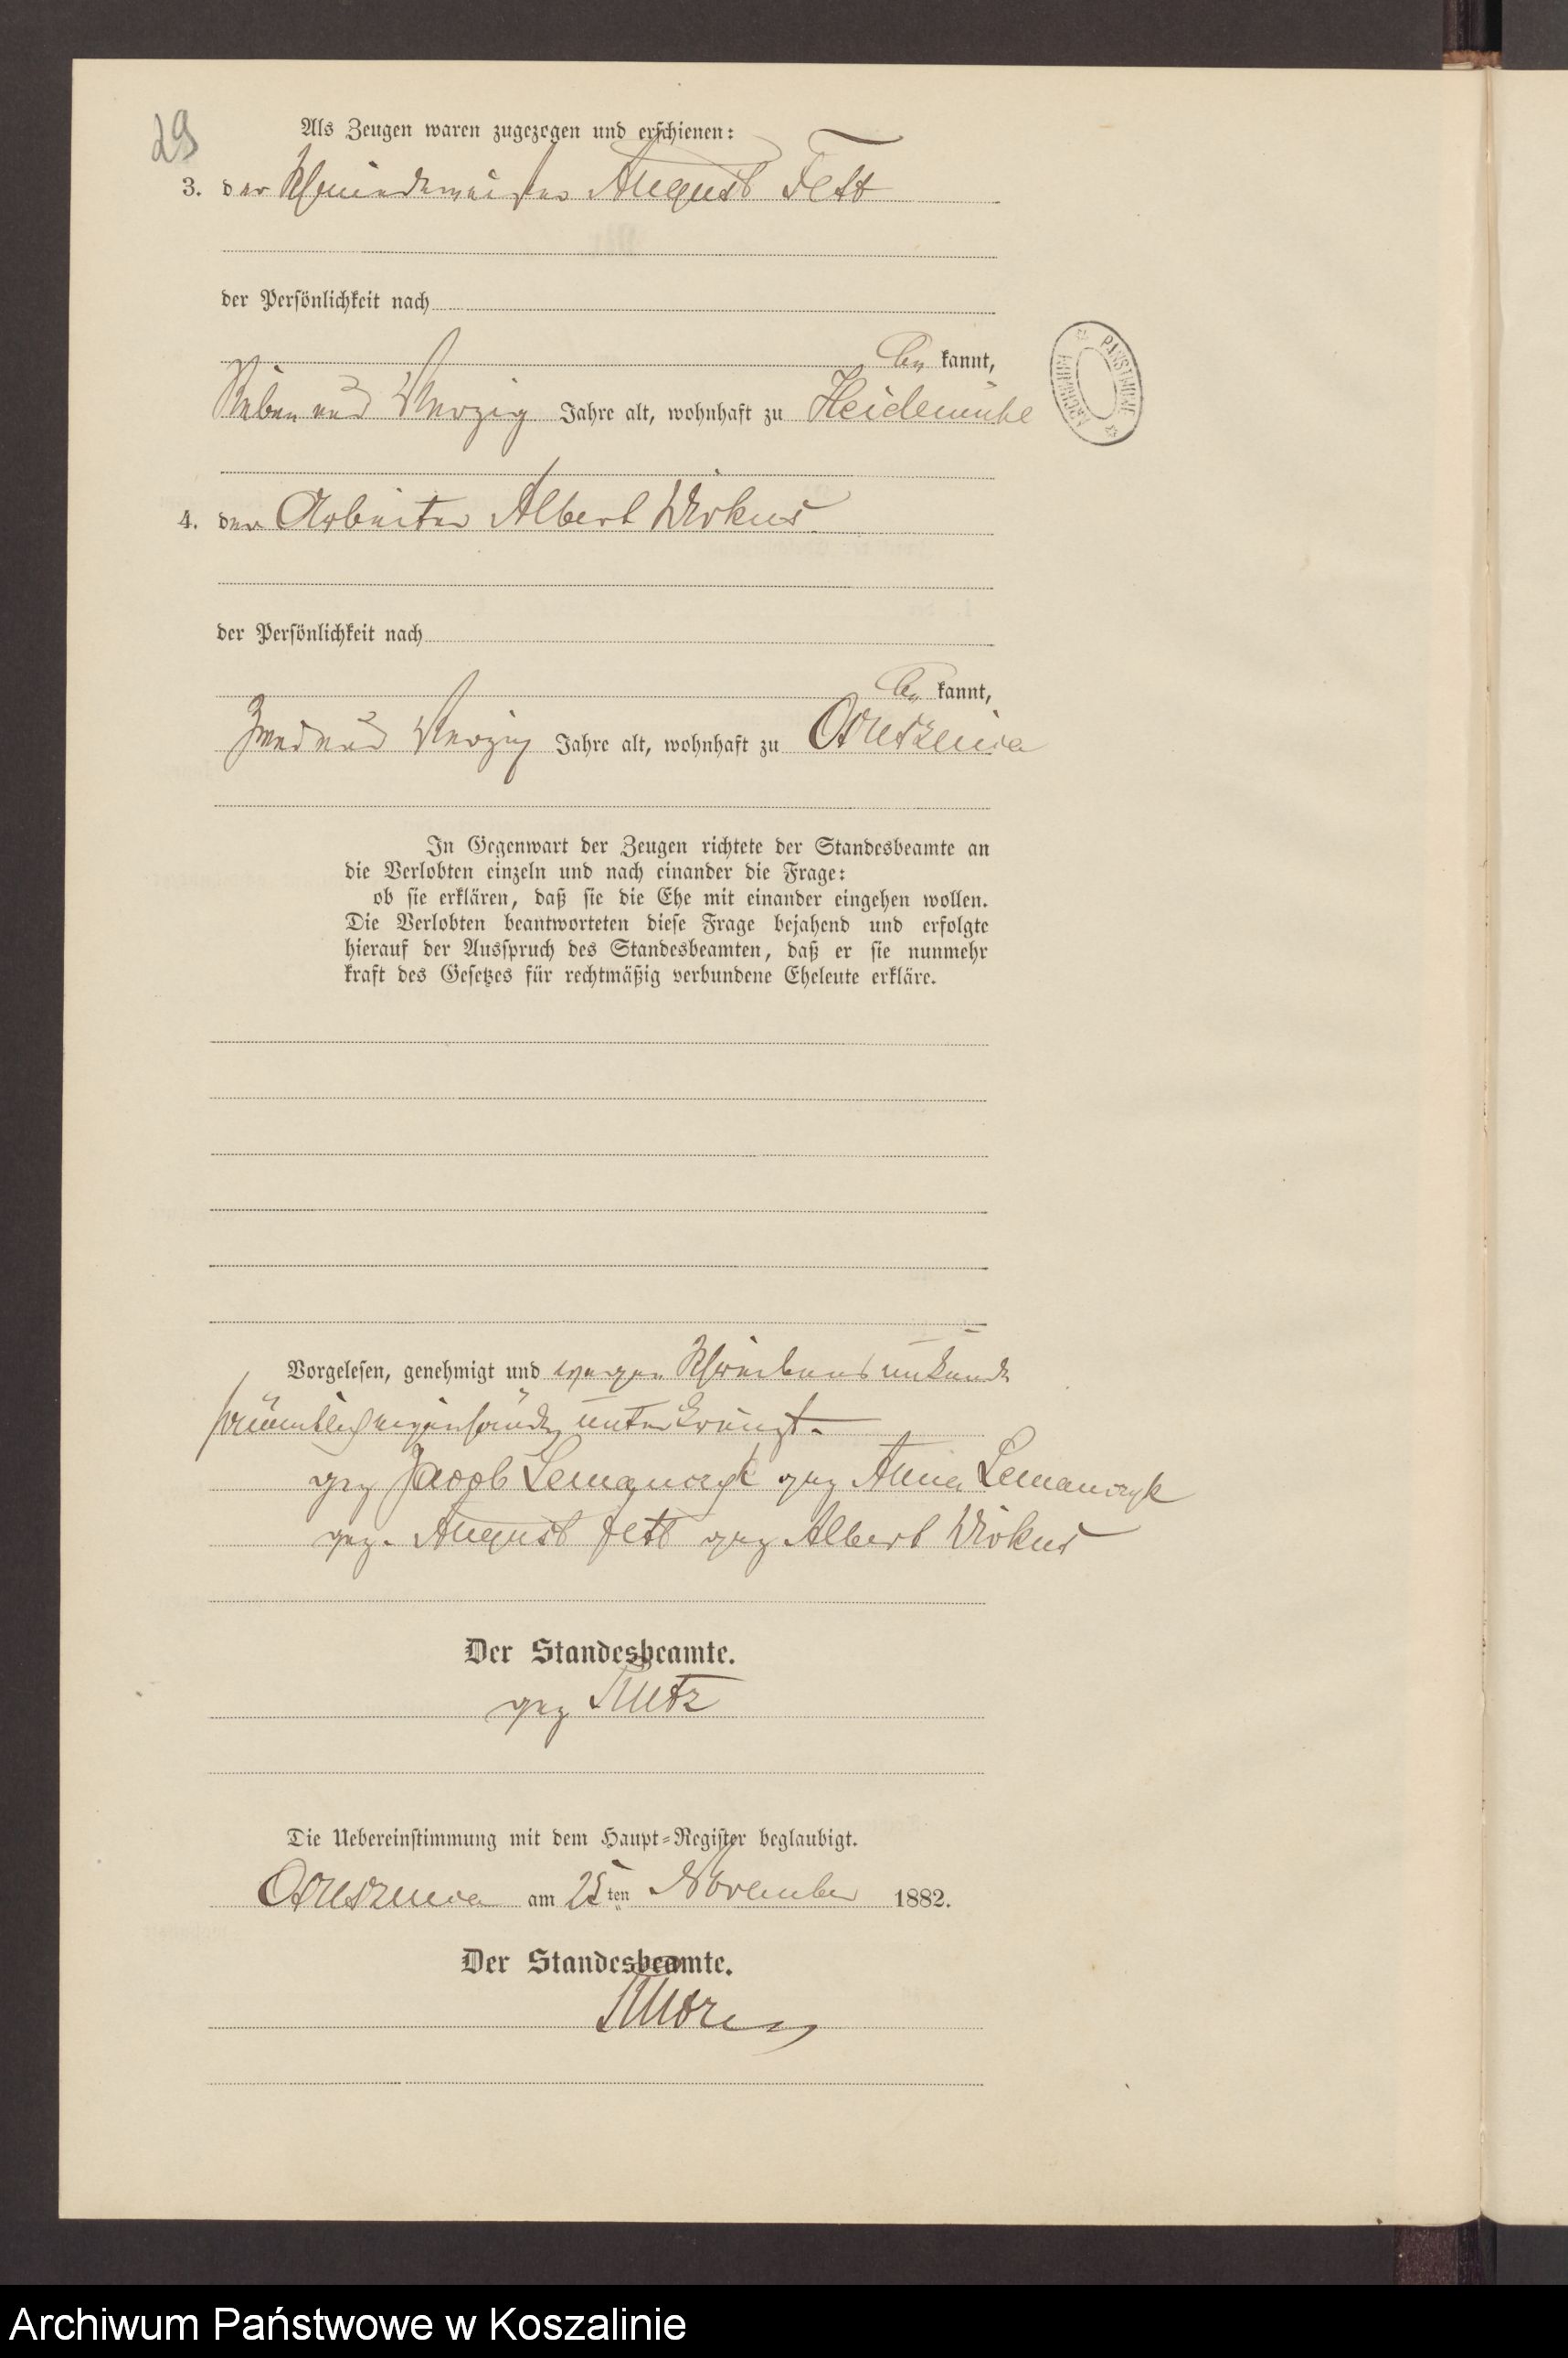 29
Als Zeugen waren zugezogen und erschienen:
3. der Schmiedemeister August Fett
der Persönlichkeit nach
be kannt,
Sieben und Vierzig Jahre alt, wohnhaft zu Heidemühle
4. der Arbeiter Albert Wirkus
der Persönlichkeit nach
be kannt,
Zwei und Vierzig Jahre alt, wohnhaft zu
In Gegenwart der Zeugen richtete der Standesbeamte an
die Verlobten einzeln und nach einander die Frage:
ob sie erklären, daß sie die Ehe mit einander eingehen wollen.
Die Verlobten beantworteten diese Frage bejahend und erfolgte
hierauf der Ausspruch des Standesbeamten, daß er sie nunmehr
kraft des Gesetzes für rechtmäßig verbundene Eheleute erkläre.
Vorgelesen, genehmigt und wegen Schreibens unkunde
sämmtlich eigenhändig unterkreuzt.
gez Jacob Lemanczyk gez Anna Lemanczyk
gez. August Fett gez Albert Wirkus
Der Standesbeamte.
gez
Die Uebereinstimmung mit dem Haupt-Register beglaubigt.
am 25ten November 1882.
Der Standesbeamte.
ARCHIWUM PAŃSTWOWE
Archiwum Państwowe w Koszalinie